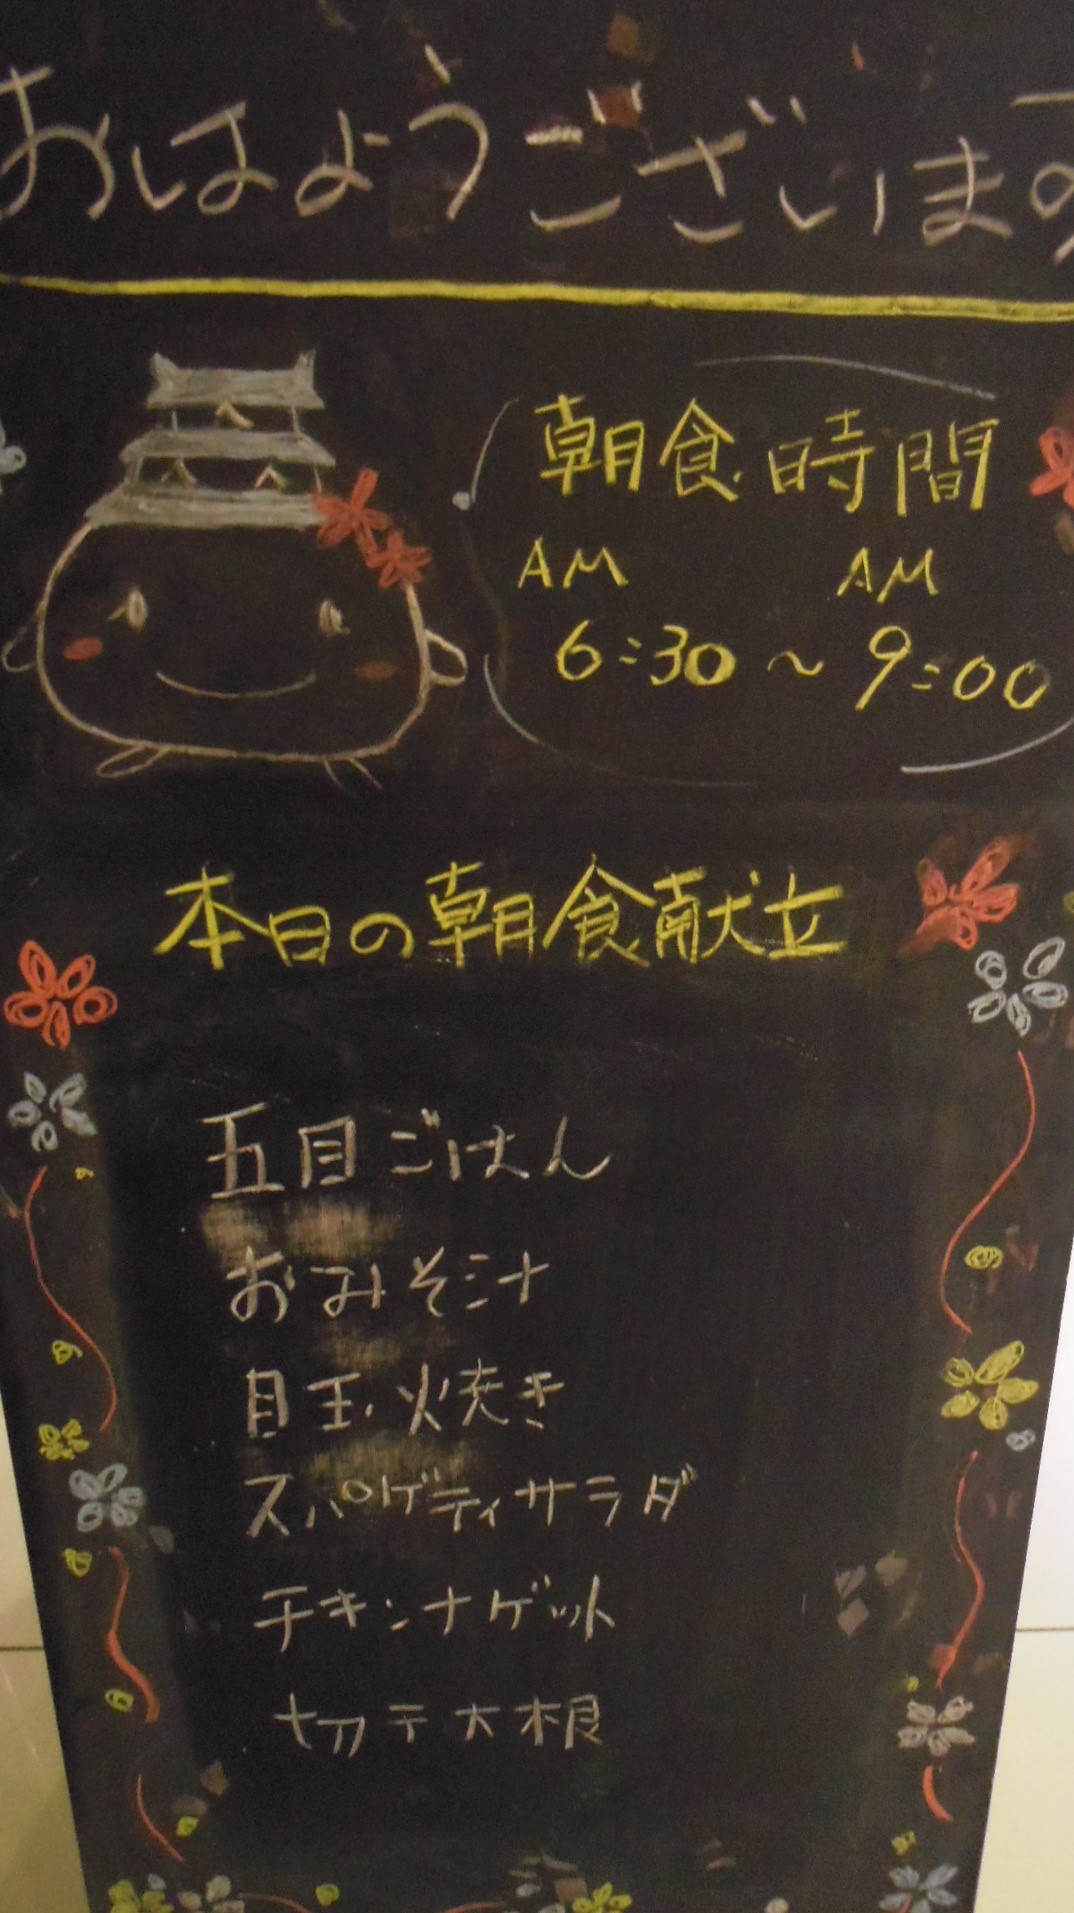 おはようございます
朝食時間
AM AM
6:30～9:00
本日の朝食献立
五目ごはん
おみそ汁
目玉焼き
スパゲティサラダ
チキンナゲット
切干大根